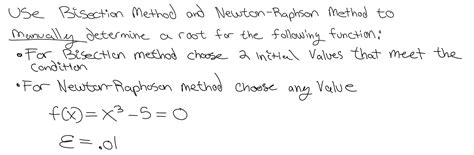 Use Bisection Method and Newton-Raphson Method to
Manually determine a root for the following function:
• For Bisection method choose 2 initial values that meet the
condition
• For Newton-Raphoson method choose any value
f(x) = x³ - 5 = 0
ε = .01